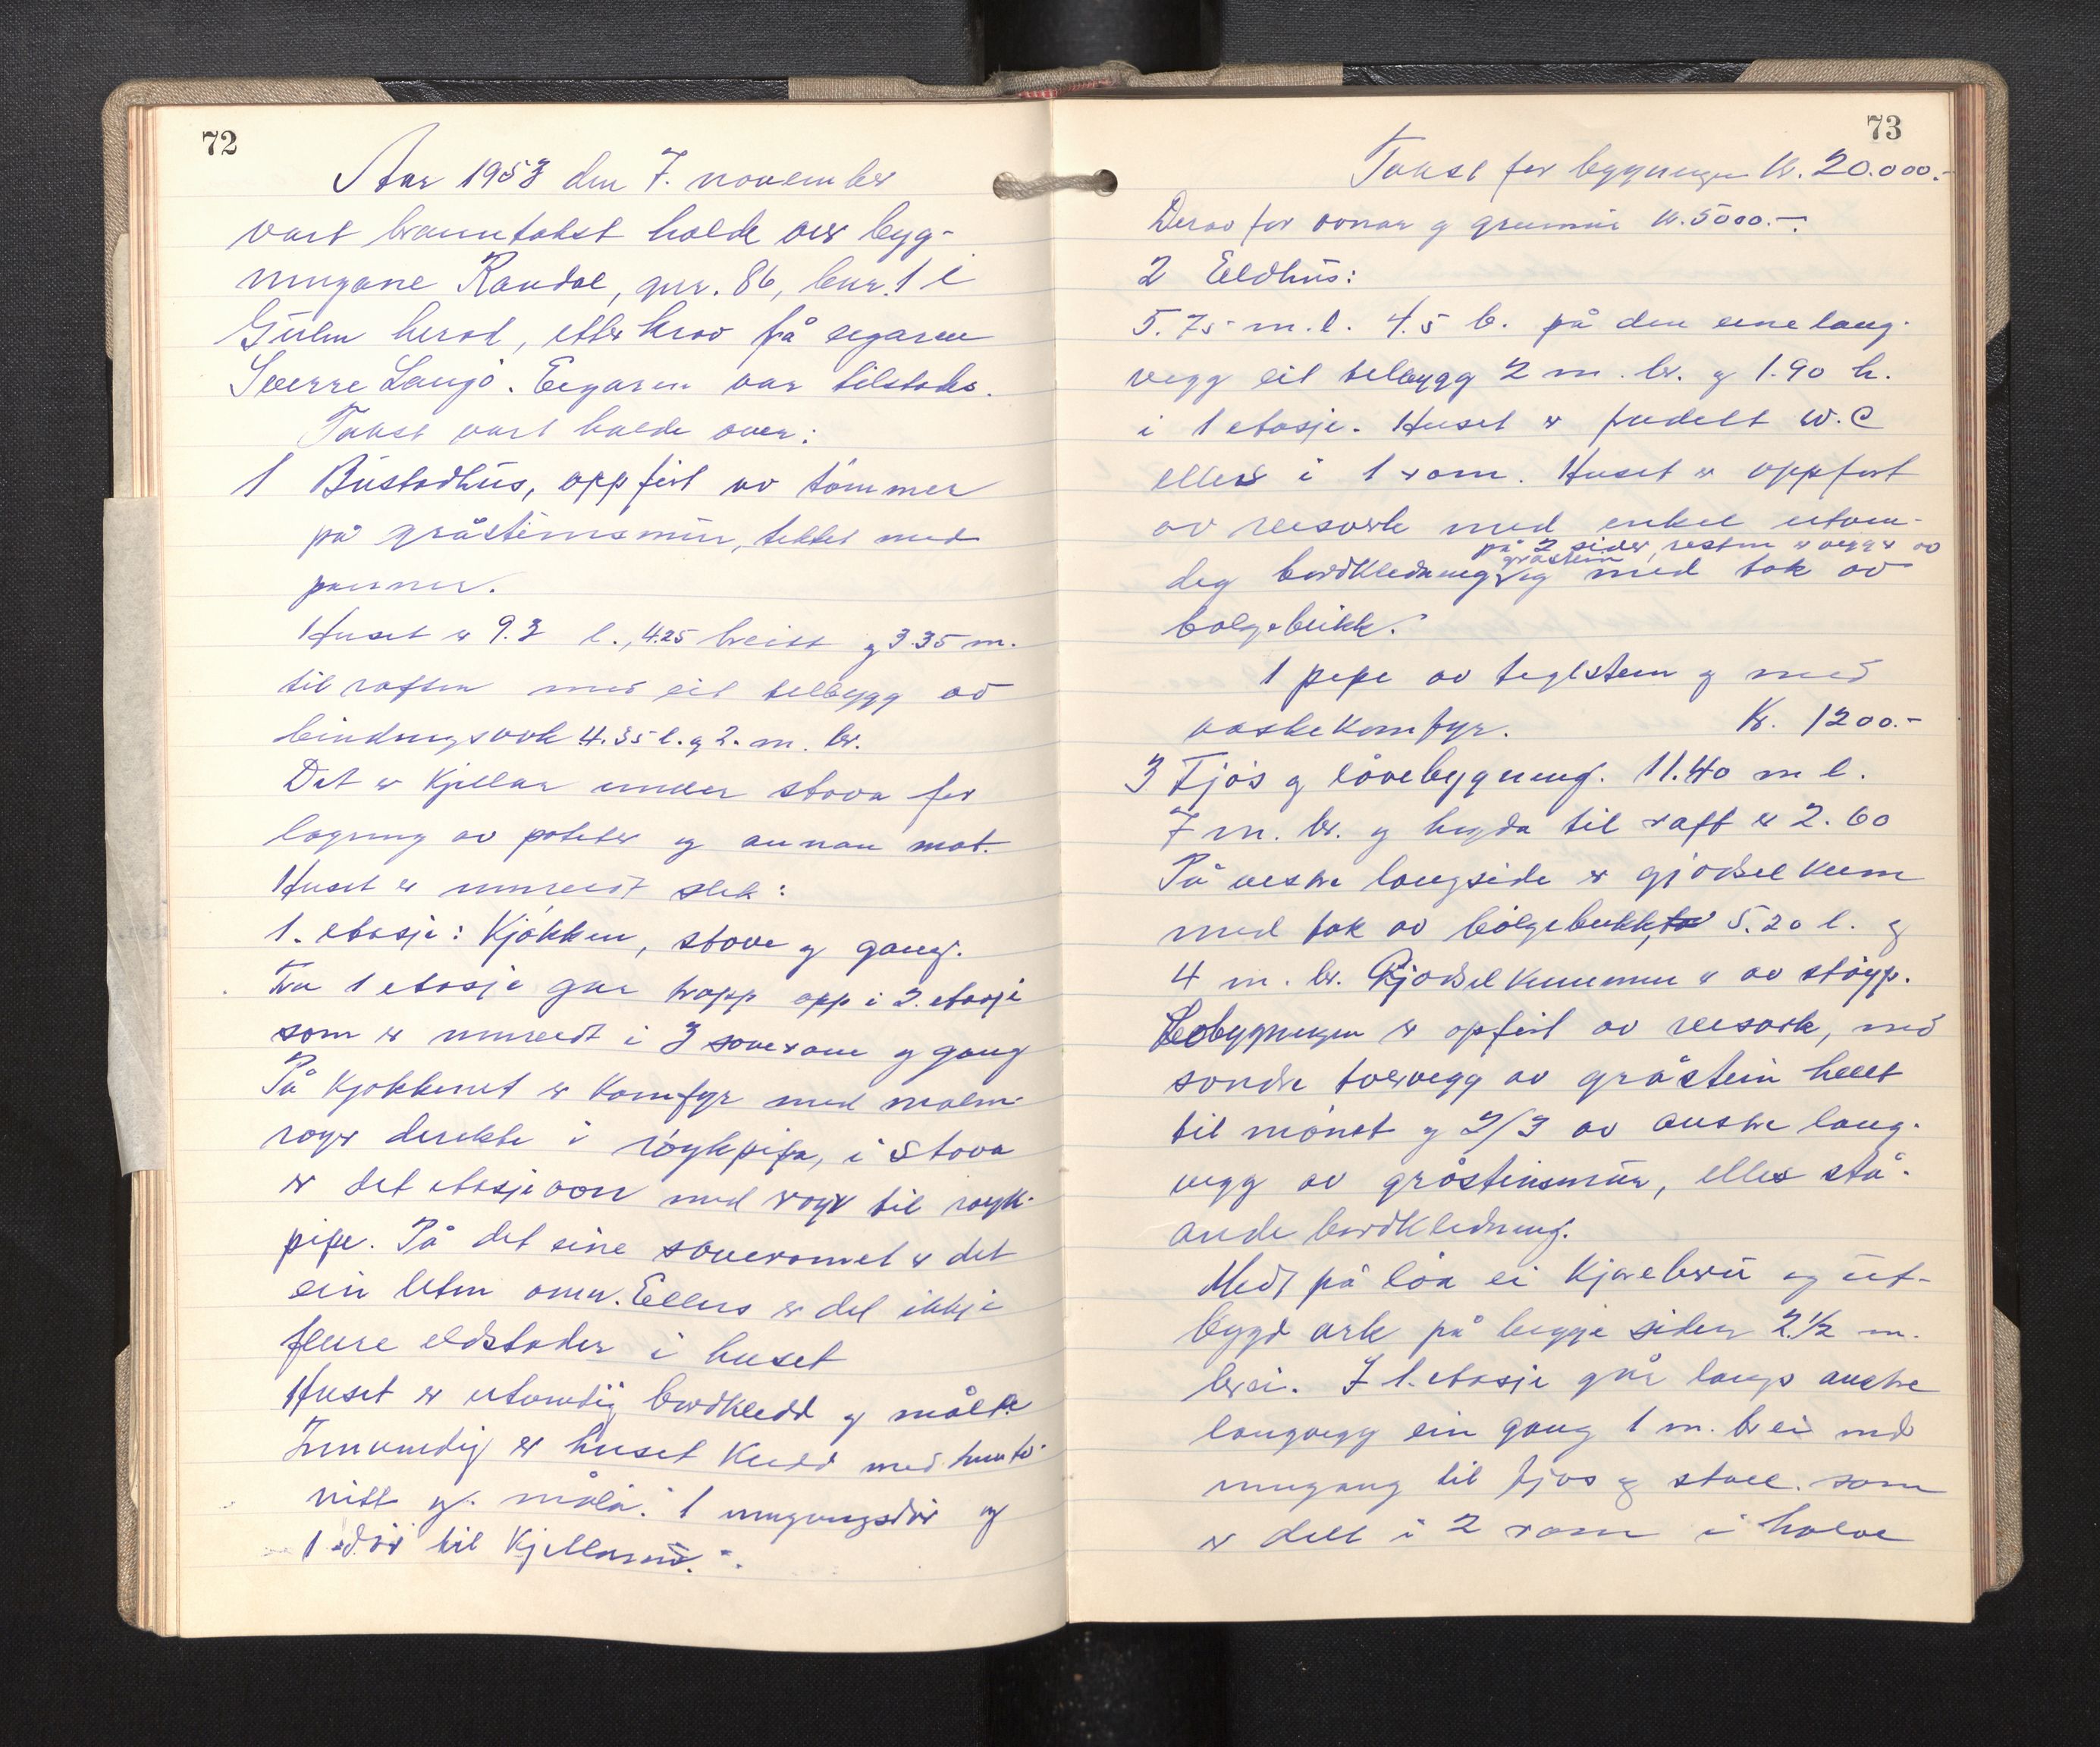 72
Aar 1953 den 7. november
vart branntakst halde over byg-
ningane Raudal, gnr. 86, bnr. 1 i
Gulen herad, etter krav få eigaren
Sverre Laugjo. Eigaren var tilstades.
Takst vart halde over:
1 Bústadhús, oppfört av tömmer
på gråsteinsmúr, tekket med
panner.
Huset er 9.3 l., 4.25 breitt og 3.35 m.
til raften med eit tilbygg av
bindingsverk 4.35 l. og 2. m. br.
Det er Kjellar under stova for
lagring av poteter og annan mat.
Huset er innreidt slik:
1. etasje: Kjökken, stove og gang.
Fra 1 etasje gar trapp opp i 2. etasje
som er innreidt i 3 soverom og gang
På Kjøkkenet er Komfyr med malm-
røyr direkte i röykpipa, i Stova
er det etasjeovn med røyr til røyk-
pipe. På det eine soveromet er det
ein liten omn. Ellers er det ikkje
fleire eldstader i huset
Huset er utvendig bordkledd og måla
Innvendig er huset Kledd med hunto-
nitt og måla. 1 inngangsdör og
1 dör til Kjellaren.
73
Takst for bygningen Kr. 20.000.-
Derav for ovnar og grunnmúr kr. 5000.-.
2 Eldhús:
5.75 m. l. 4.5 b. på den eine lang-
vegg eit tilbygg 2 m. br. og 1.90 h.
i 1 etasje. Huset er fradelt W.C
ellers i 1 rom. Huset er oppfort
av reisverk med enkel utven-
på 2 sider, resten er vegger av
gråstein
dig bordkledning og med tak av
bolgeblikk.
1 pipe av teglstein og med
vaskekomfyr. Kr. 1200.-
3 Fjös og lövebygning. 11.40 m l.
7 m. br. og høgda til raft er 2.60
På vestre langside er gjødsel kum
med tak av bölgeblikk, 5.20 l. og
4 m. br. Gjødsel kummen er av stöyp.
Løbygningen er opfört av reisverk, med
søndre tverrvegg av gråstein heilt
til mönet og 2/3 av austre lang-
vegg av gråsteinsmúr, elles stå-
ande bordkledning.
Midt på löa ei Kjørebrú og út-
bygd ark på begge sider 2.1/2 m.
brei. I 1. etasje går langs austre
langvegg ein gang 1 m. brei med
inngang til fjøs og stall. som
er delt i 2 rom i halve